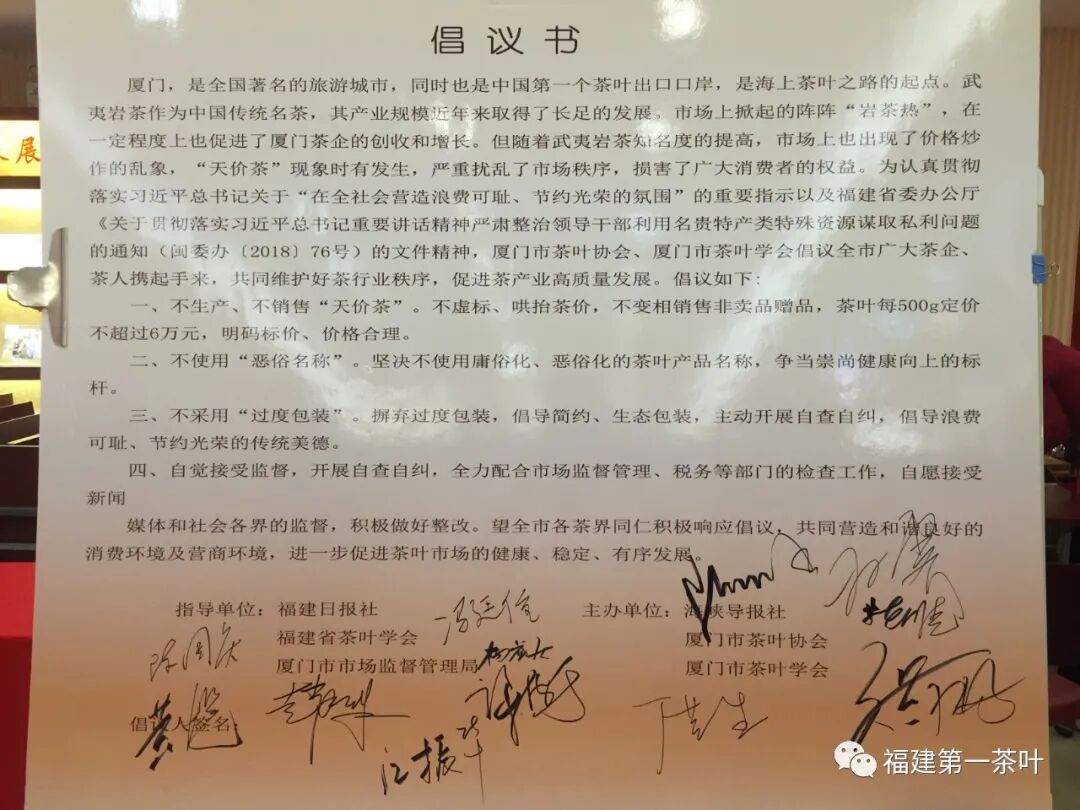 倡议书
厦门，是全国著名的旅游城市，同时也是中国第一个茶叶出口口岸，是海上茶叶之路的起点。武
夷岩茶作为中国传统名茶，其产业规模近年来取得了长足的发展。市场上掀起的阵阵“岩茶热”，在
一定程度上也促进了厦门茶企的创收和增长。但随着武夷岩茶知名度的提高，市场上也出现了价格炒
作的乱象，“天价茶”现象时有发生，严重扰乱了市场秩序，损害了广大消费者的权益。为认真贯彻
落实习近平总书记关于“在全社会营造浪费可耻、节约光荣的氛围”的重要指示以及福建省委办公厅
《关于贯彻落实习近平总书记重要讲话精神严肃整治领导干部利用名贵特产类特殊资源谋取私利问题
的通知（闽委办〔2018〕76号）的文件精神，厦门市茶叶协会、厦门市茶叶学会倡议全市广大茶企、
茶人携起手来，共同维护好茶行业秩序，促进茶产业高质量发展。倡议如下：
一、不生产、不销售“天价茶”。不虚标、哄抬茶价，不变相销售非卖品赠品，茶叶每500g定价
不超过6万元，明码标价、价格合理。
二、不使用“恶俗名称”。坚决不使用庸俗化、恶俗化的茶叶产品名称，争当崇尚健康向上的标
杆。
三、不采用“过度包装”。摒弃过度包装，倡导简约、生态包装，主动开展自查自纠，倡导浪费
可耻、节约光荣的传统美德。
四、自觉接受监督，开展自查自纠，全力配合市场监督管理、税务等部门的检查工作，自愿接受
新闻
媒体和社会各界的监督，积极做好整改。望全市各茶界同仁积极响应倡议，共同营造和谐良好的
消费环境及营商环境，进一步促进茶叶市场的健康、稳定、有序发展。
指导单位：福建日报社 主办单位：海峡导报社
福建省茶叶学会 厦门市茶叶协会
厦门市市场监督管理局 厦门市茶叶学会
倡议人签名：
江振华
展
福建第一茶叶